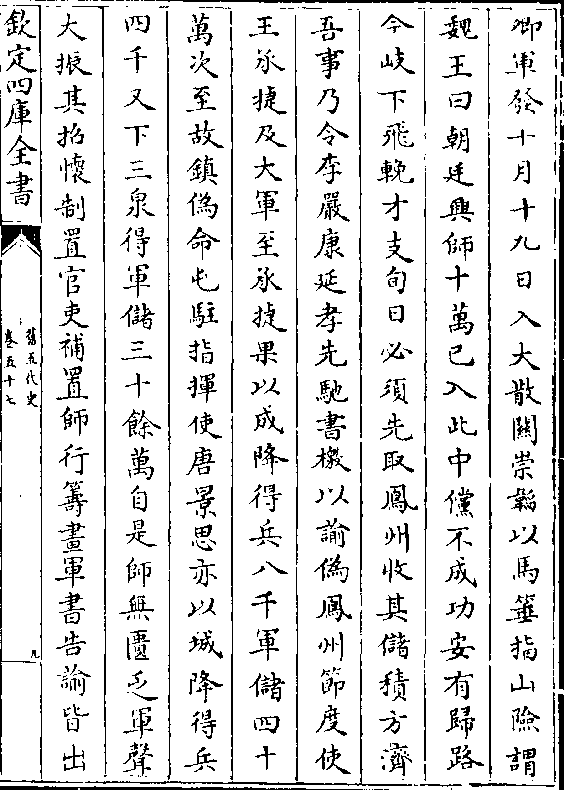 卿軍發十月十九日入大散關崇韜以馬箠指山險謂
魏王曰朝廷興師十萬已入此中儻不成功安有歸路
今岐下飛輓才支旬日必須先取鳳州收其儲積方濟
吾事乃令李嚴康延孝先馳書檄以諭偽鳳州節度使
王承捷及大軍至承捷果以成降得兵八千軍儲四十
萬次至故鎮偽命屯駐指揮使唐景思亦以城降得兵
四千又下三泉得軍儲三十餘萬自是師無匱乏軍聲
大振其招懷制置官吏補置師行籌畫軍書告諭皆出
欽定四庫全書
舊五代史
卷五十七
九